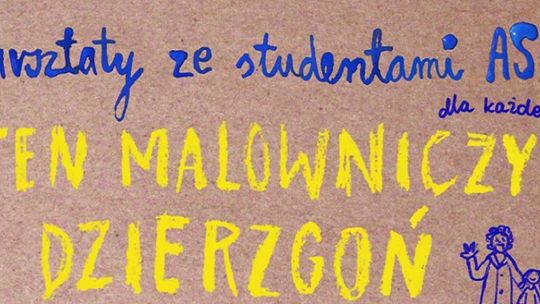 arsztaty ze studentami AS
dla każde
TEN MALOWNICZY
DZIERZGOŃ